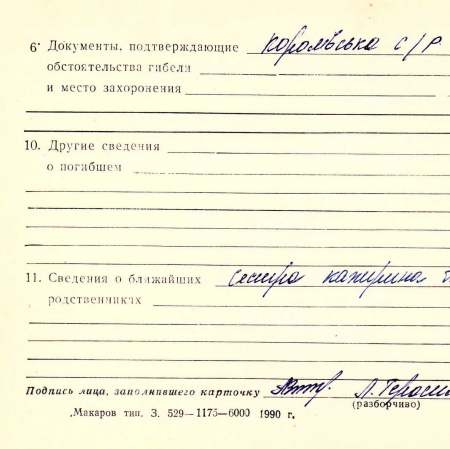 6. Документы, подтверждающие Королівська с/р
обстоятельства гибели
и место захоронения
10. Другие сведения
о погибшем
11. Сведения о ближайших сестра
родственниках
Подпись лица, заполнившего карточку
(разборчиво)
Макаров тип. З. 529—1175—6000 1990 г.